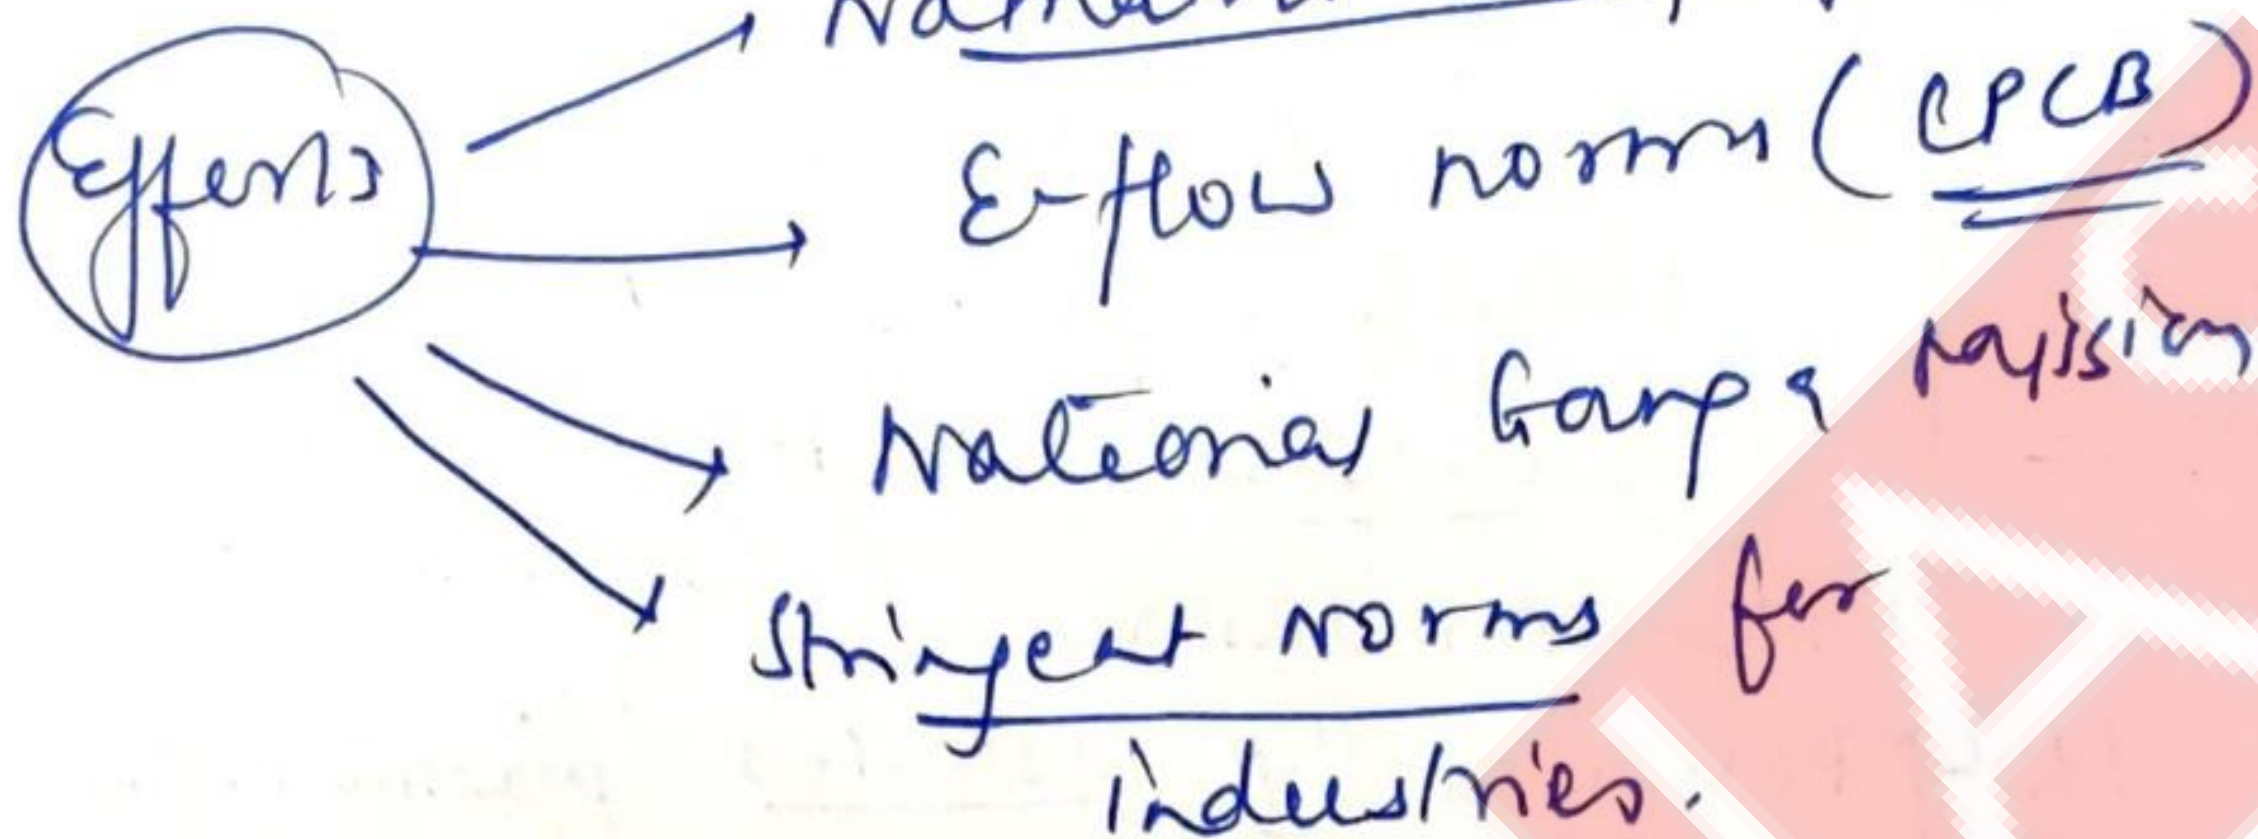 Efforts
E-flow norms (CPCB)
National Ganga mission
Stringent norms for
industries.